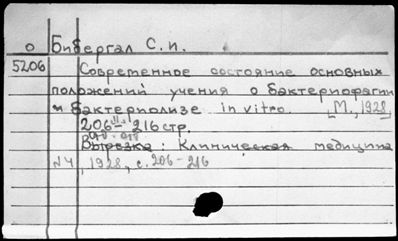 О Бибергал С. И.
5206 Современное состояние основных
положений учения о бактериофагии
и бактериолизе in vitro. [М., 1928]
206 - 216 стр.
Вырезка: Клиническая медицина
№4, 1928, с. 206-216